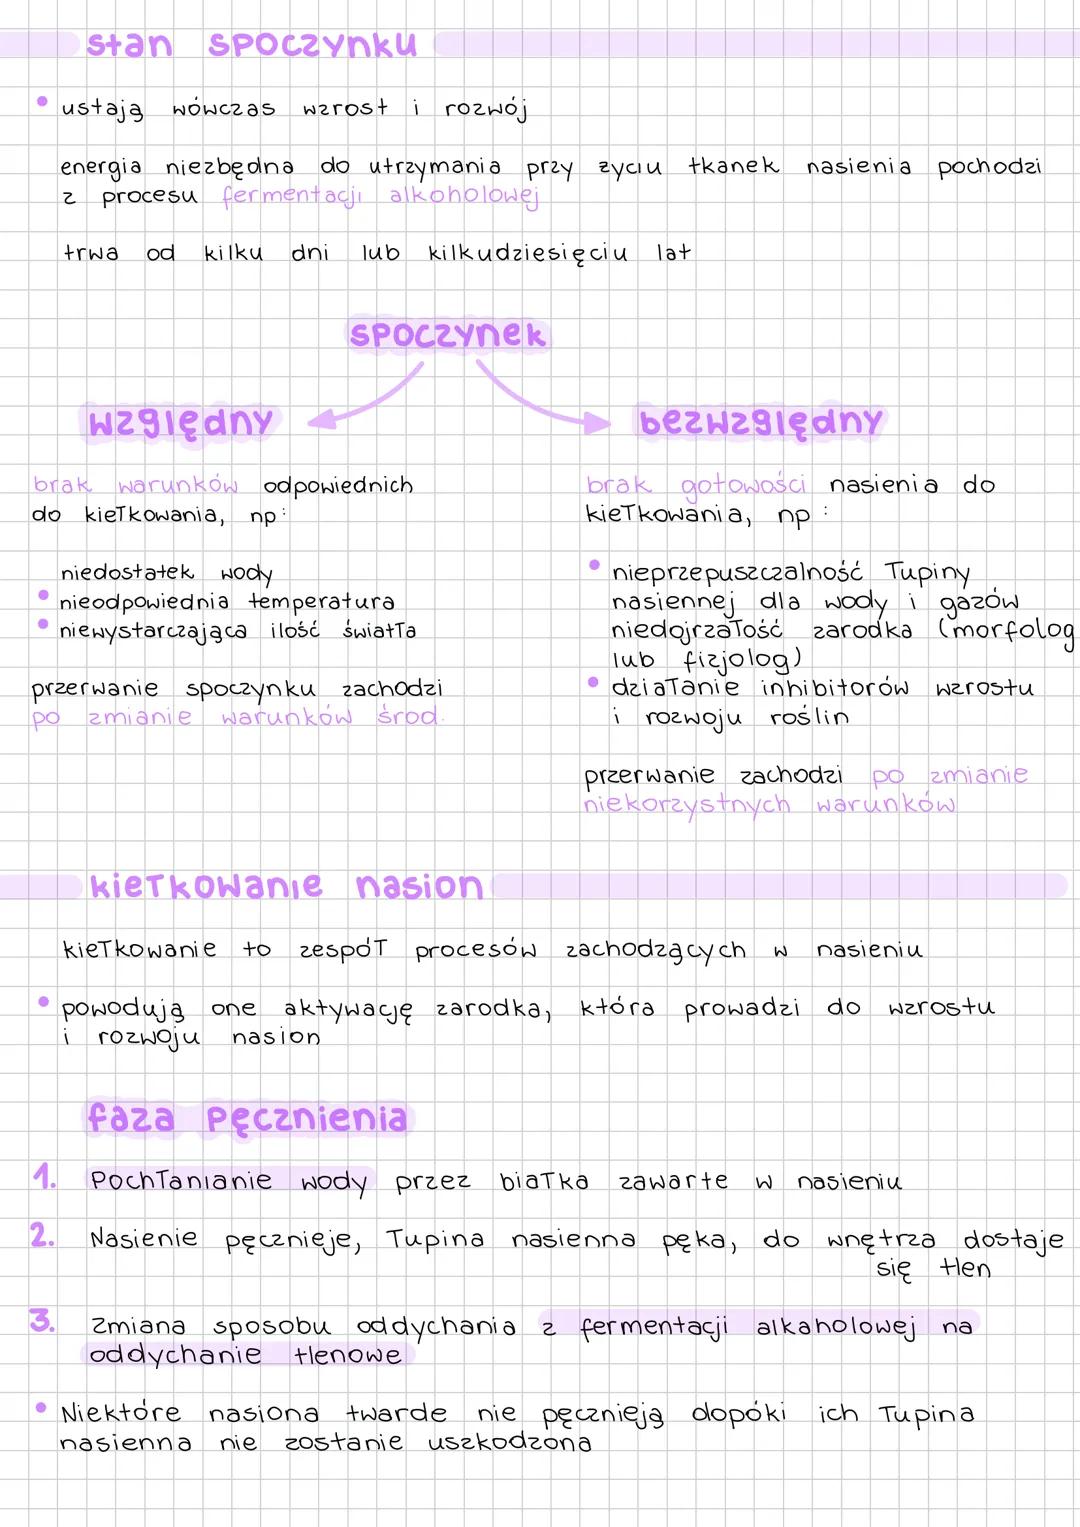 stan spoczynku
• ustają wówczas wzrost i rozwój
energia niezbędna do utrzymania przy życiu tkanek nasienia pochodzi
z procesu fermentacji alkoholowej
trwa od kilku dni lub kilkudziesięciu lat
spoczynek
względny
brak warunków odpowiednich
do kiełkowania, np:
niedostatek wody
• nieodpowiednia temperatura
• niewystarczająca ilość światła
przerwanie spoczynku zachodzi
po zmianie warunków środ.
bezwzględny
brak gotowości nasienia do
kiełkowania, np:
• nieprzepuszczalność łupiny
nasiennej dla wody i gazów
niedojrzałość zarodka (morfolog
lub fizjolog)
• działanie inhibitorów wzrostu
i rozwoju roślin
przerwanie zachodzi po zmianie
niekorzystnych warunków
kiełkowanie nasion
kiełkowanie to zespół procesów zachodzących w nasieniu
• powodują one aktywację zarodka, która prowadzi do wzrostu
i rozwoju nasion
faza pęcznienia
1. Pochłanianie wody przez białka zawarte w nasieniu
2. Nasienie pęcznieje, łupina nasienna pęka, do wnętrza dostaje
się tlen
3. zmiana sposobu oddychania z fermentacji alkaholowej na
oddychanie tlenowe
• Niektóre nasiona twarde nie pęcznieją dopóki ich łupina
nasienna nie zostanie uszkodzona